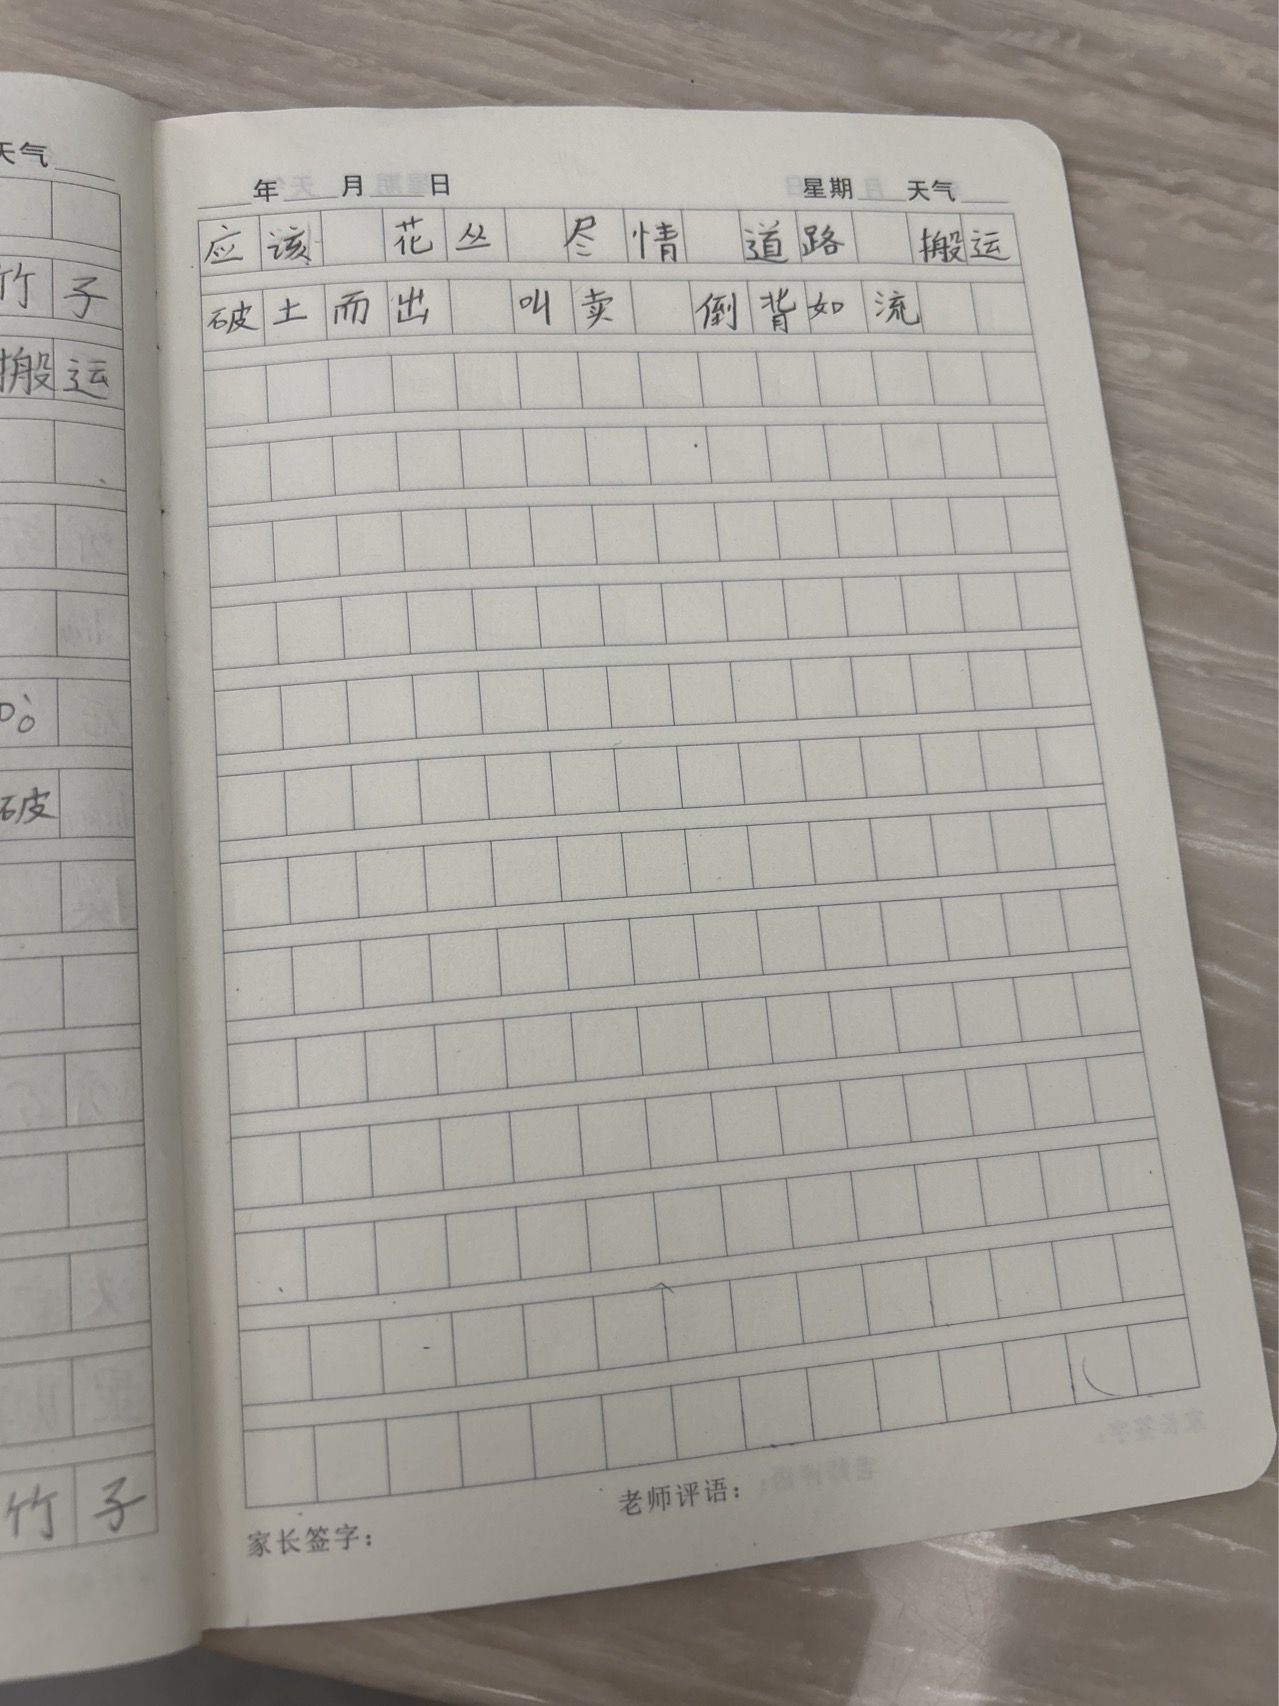 天气
竹子
搬运
破
竹子
年 月 日 星期 天气
应该 花丛 尽情 道路 搬运
破土而出 叫卖 倒背如流
老师评语：
家长签字：